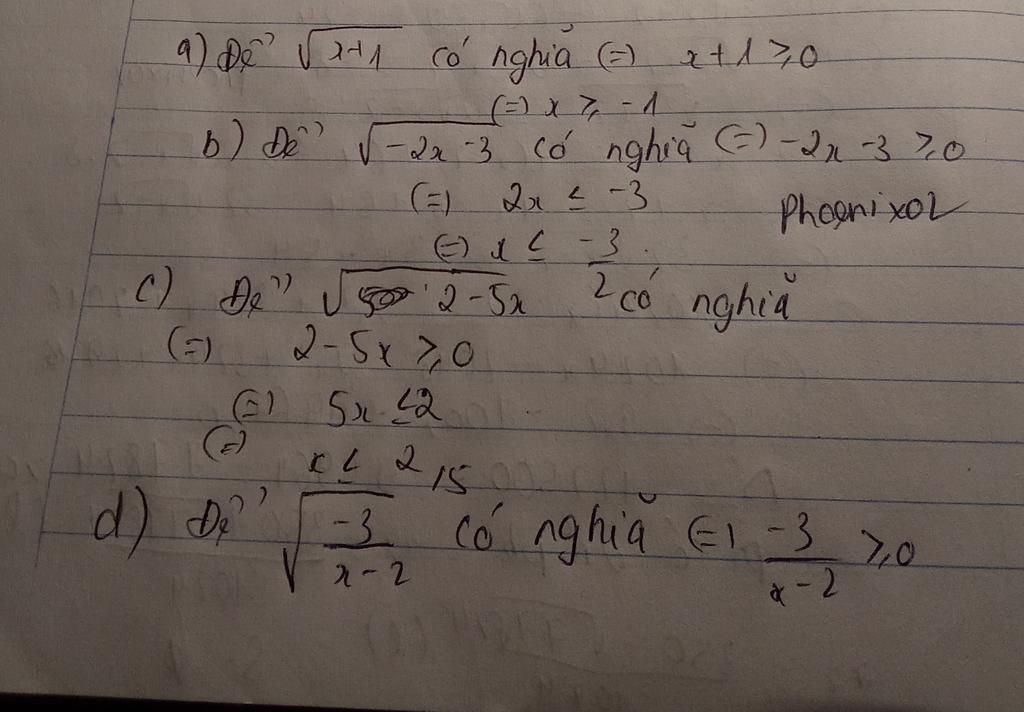 a) Để √(x+1) có nghĩa (=) x+1 ≥ 0
(=) x ≥ -1
b) Để √(-2x-3) có nghĩa (=) -2x-3 ≥ 0
(=) 2x ≤ -3
Phoenixol
(=) x ≤ -3/2
c) Để √(2-5x) có nghĩa
(=) 2-5x ≥ 0
(=) 5x ≤ 2
(=) x ≤ 2/5
d) Để √(-3/(x-2)) có nghĩa (=) -3/(x-2) ≥ 0